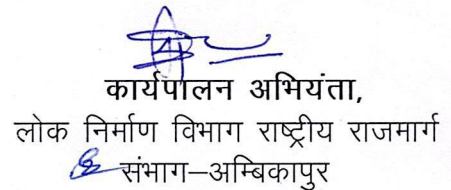 कार्यपालन अभियंता,
लोक निर्माण विभाग राष्ट्रीय राजमार्ग
संभाग–अम्बिकापुर